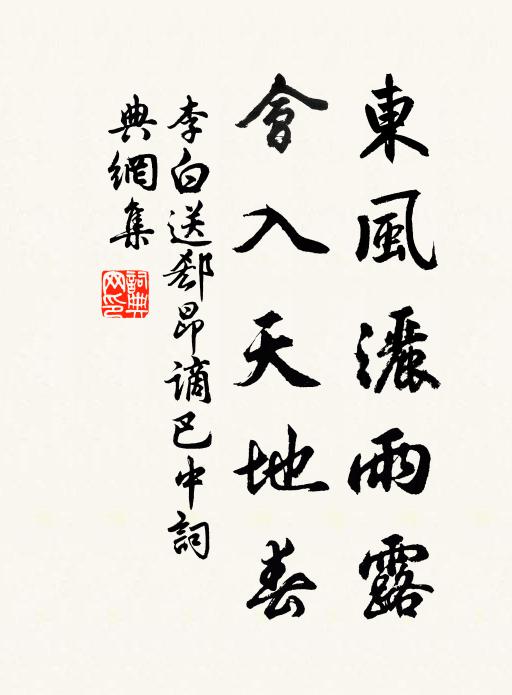 東風灑雨露
會入天地春
李白送郄昂謫巴中詞
典網集
詞典網印